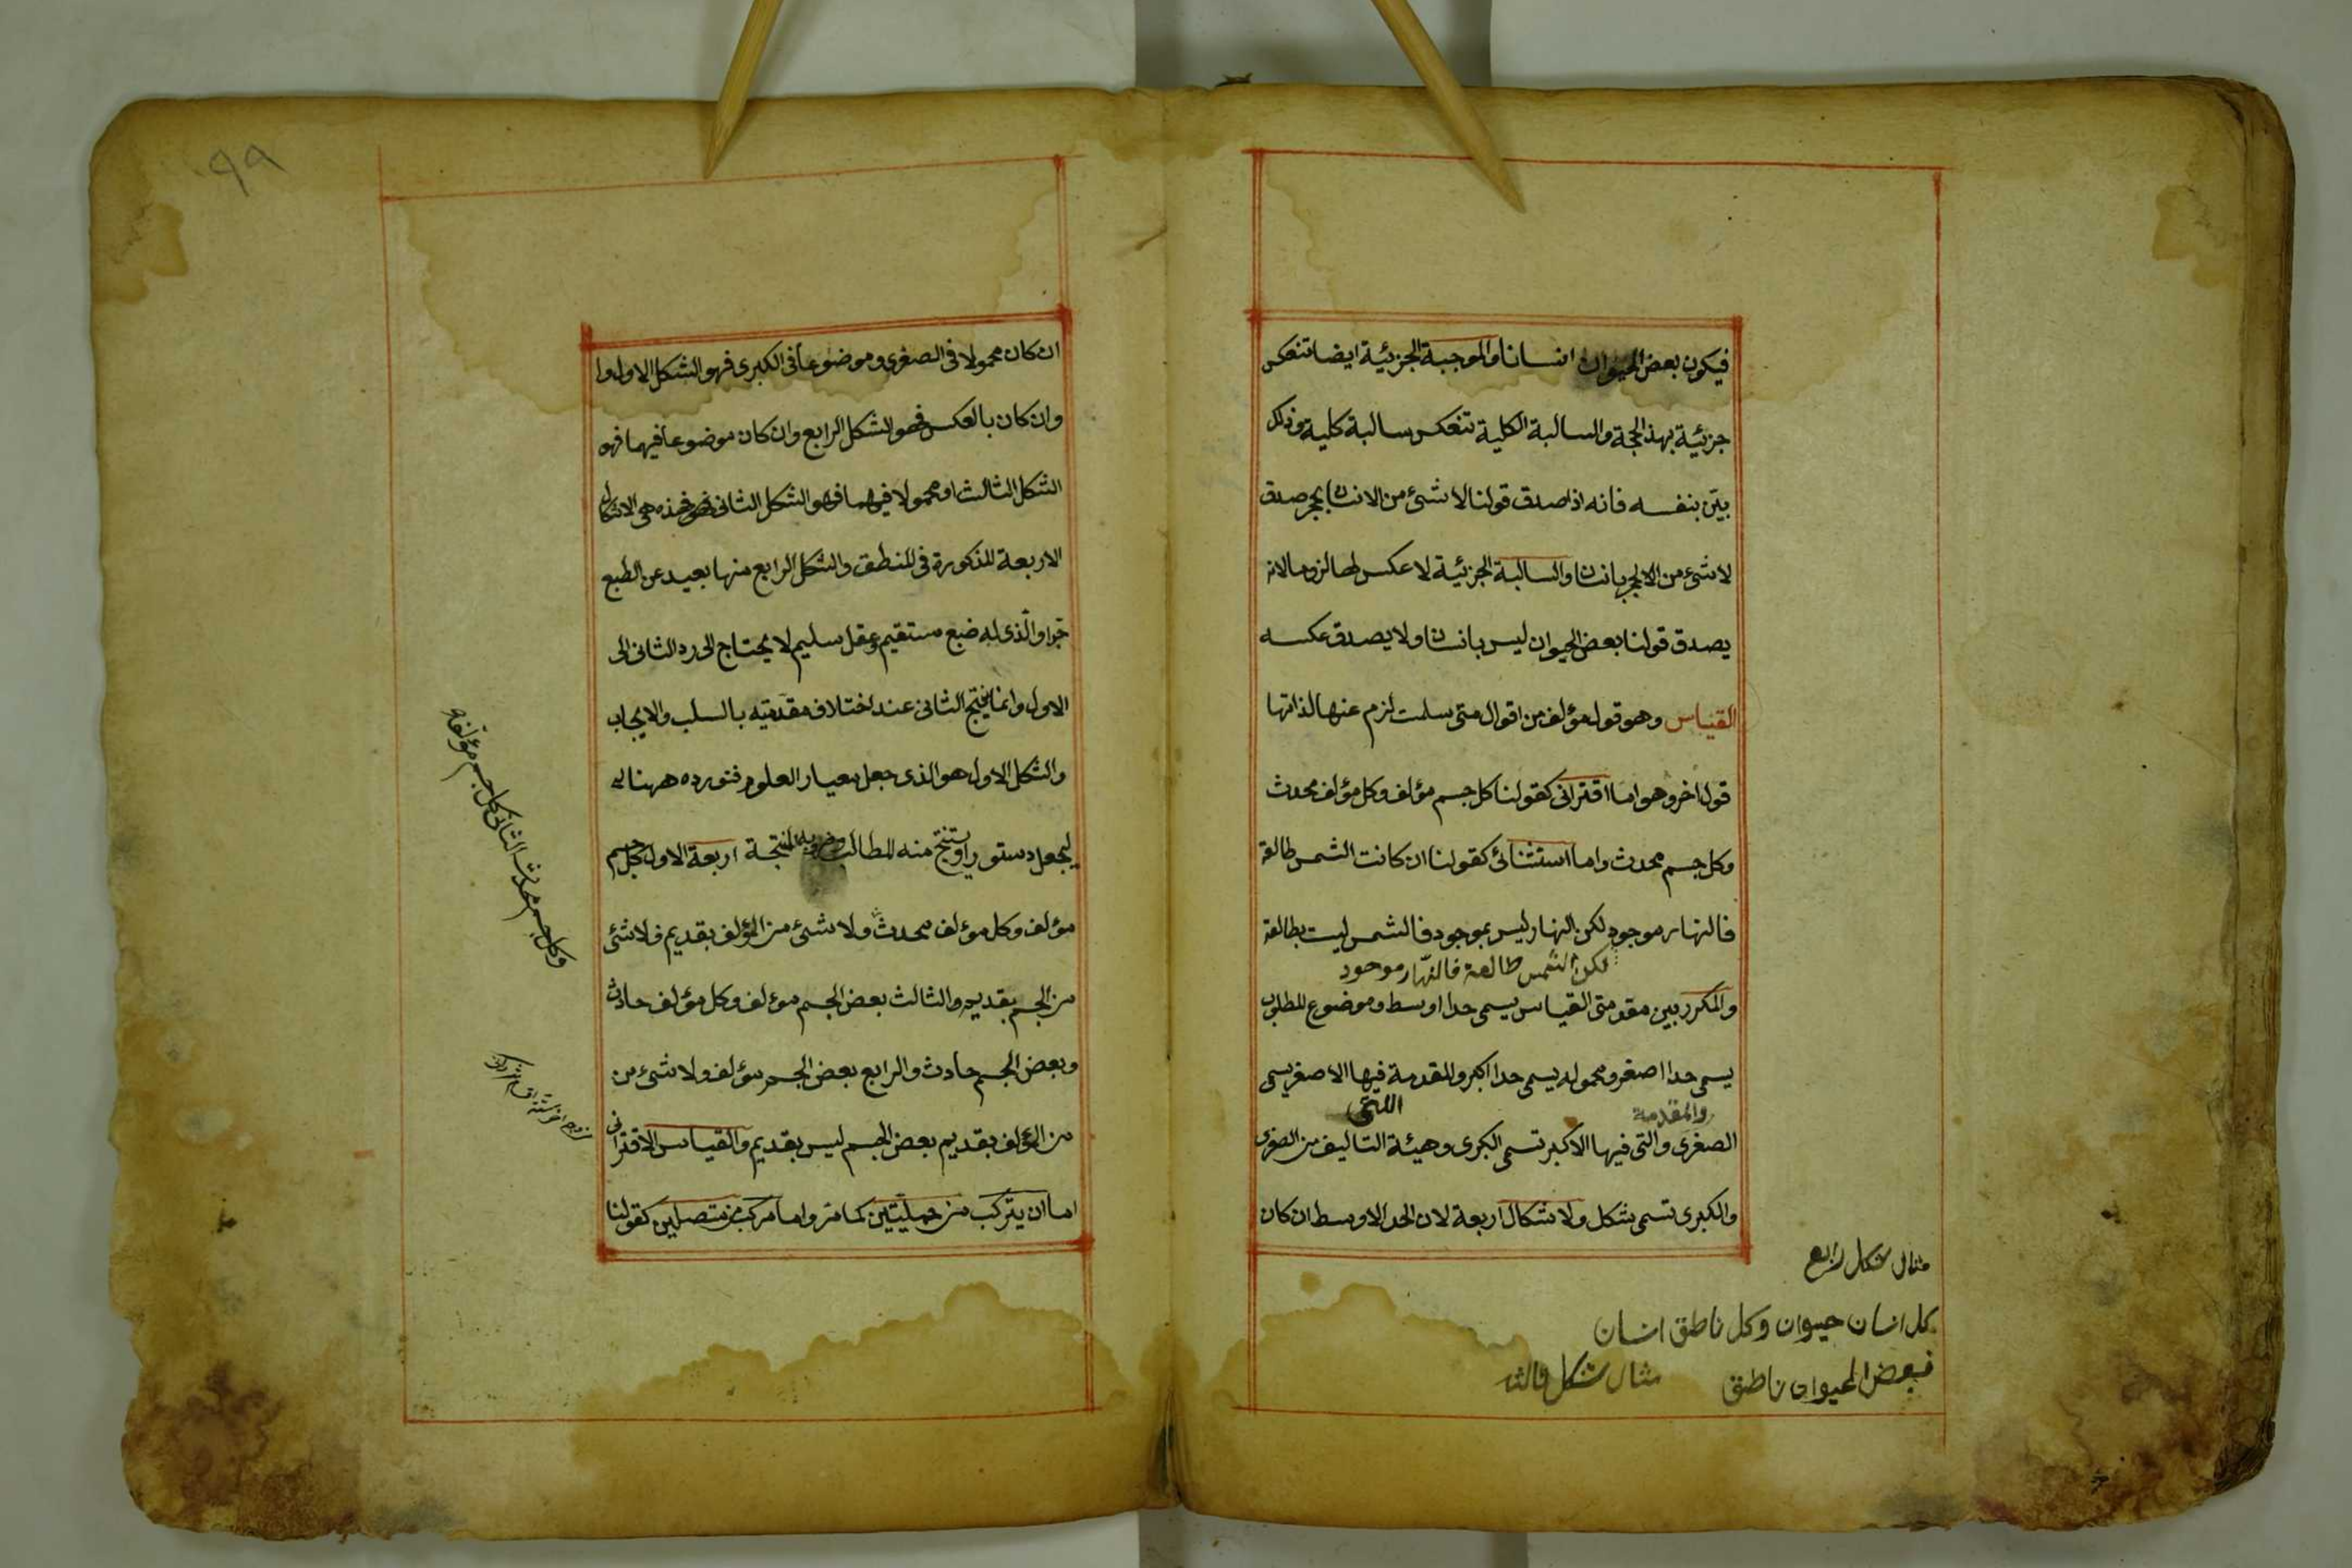 فيكون بعض الحيوان انسانا والموجبة الجزئية ايضا تنعكس
جزئية بهذ الحجة والسالبة الكلية تنعكس سالبة كلية وذلك
بيّن بنفسه فانه اذا صدق قولنا لا شئ من الانسان بحجر صدق
لا شئ من الحجر بانسان والسالبة الجزئية لا عكس لها لزوما لانه
يصدق قولنا بعض الحيوان ليس بانسان ولا يصدق عكسه
القياس وهو قول مؤلف من اقوال متى سلمت لزم عنها لذاتها
قول اخر وهو اما اقترانى كقولنا كل جسم مؤلف وكل مؤلف محدث
وكل جسم محدث واما استثنائ كقولنا ان كانت الشمس طالعة
فالنهار موجود لكن النهار ليس بموجود فالشمس ليست بطالعة
لكن الشمس طالعة فالنهار موجود
والمكرر بين مقدمتى القياس يسمى حدا اوسط وموضوع المطلوب
يسمى حدا اصغر ومحموله يسمى حدا اكبر والمقدمة فيها الاصغر يسمى
اللتى
والمقدمة
الصغرى والتى فيها الاكبر تسمى الكبرى وهيئة التاليف من الصغرى
والكبرى تسمى شكل ولاشكال اربعة لان الحد الاوسط ان كان
مثال شكل رابع
كل انسان حيوان وكل ناطق انسان
فبعض الحيوان ناطق
مثال شكل ثالث
٩٩
ان كان محمولا فى الصغرى وموضوعا فى الكبرى فهو الشكل الاول وا
وان كان بالعكس فهو الشكل الرابع وان كان موضوعا فيهما فهو
الشكل الثالث او محمولا فيهما فهو الشكل الثانى فهذه هى الاشكال
الاربعة المذكورة فى المنطق والشكل الرابع منها بعيد عن الطبع
جدا والّذى له ضبع مستقيم وعقل سليم لا يحتاج الى رد الثانى الى
الاول وانما ينتج الثانى عند اختلاف مقدمتيه بالسلب والايجاب
والشكل الاول هو الذى جعل معيار العلوم فنورده ههنا
ليجعل دستورا ويستنتج منه المطالب وضروبه المنتجة اربعة الاول كل جسم
مؤلف وكل مؤلف محدث ولا شئ من المؤلف بقديم فلا شئ
من الجسم بقديم والثالث بعض الجسم مؤلف وكل مؤلف حادث
وبعض الجسم حادث والرابع بعض الجسم مؤلف ولا شئ من
من المؤلف بقديم بعض الجسم ليس بقديم والقياس الاقترانى
اما ان يتركب من حمليّتين كما مر واما مركب من متصلين كقولنا
وكل جسم محدث الثانى كل جسم مؤلف